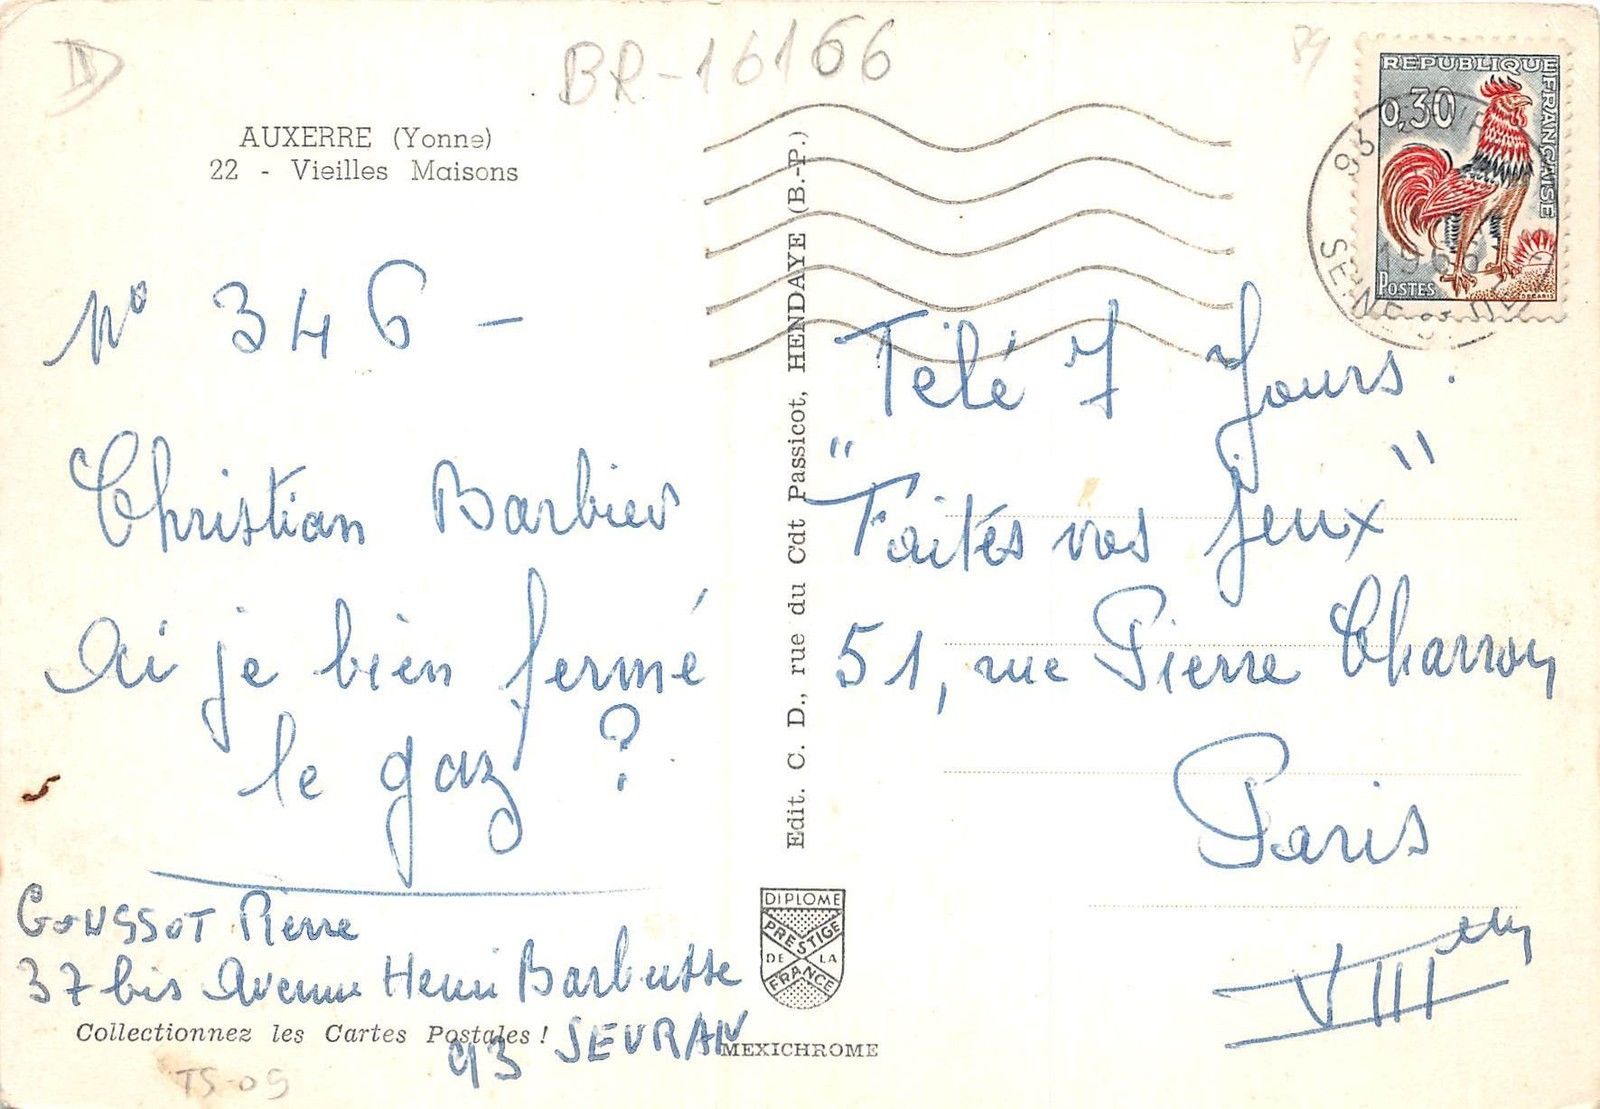 BR-16166
AUXERRE (Yonne)
22 - Vieilles Maisons
N° 346 -
Christian Barbier
Ai je bien fermé
le gaz ?
GOUSSOT Pierre
37 bis Avenue Henri Barbusse
93 SEVRAN
Collectionnez les Cartes Postales !
TS-09
Edit. C. D., rue du Cdt Passicot, HENDAYE (B.-P.)
DIPLOME
PRESTIGE
DE LA
FRANCE
MEXICHROME
REPUBLIQUE FRANÇAISE
0,30
POSTES
DECARIS
93
1966
SEINE
Télé 7 Jours.
"Faités vos jeux"
51, rue Pierre Charron
Paris
VIII